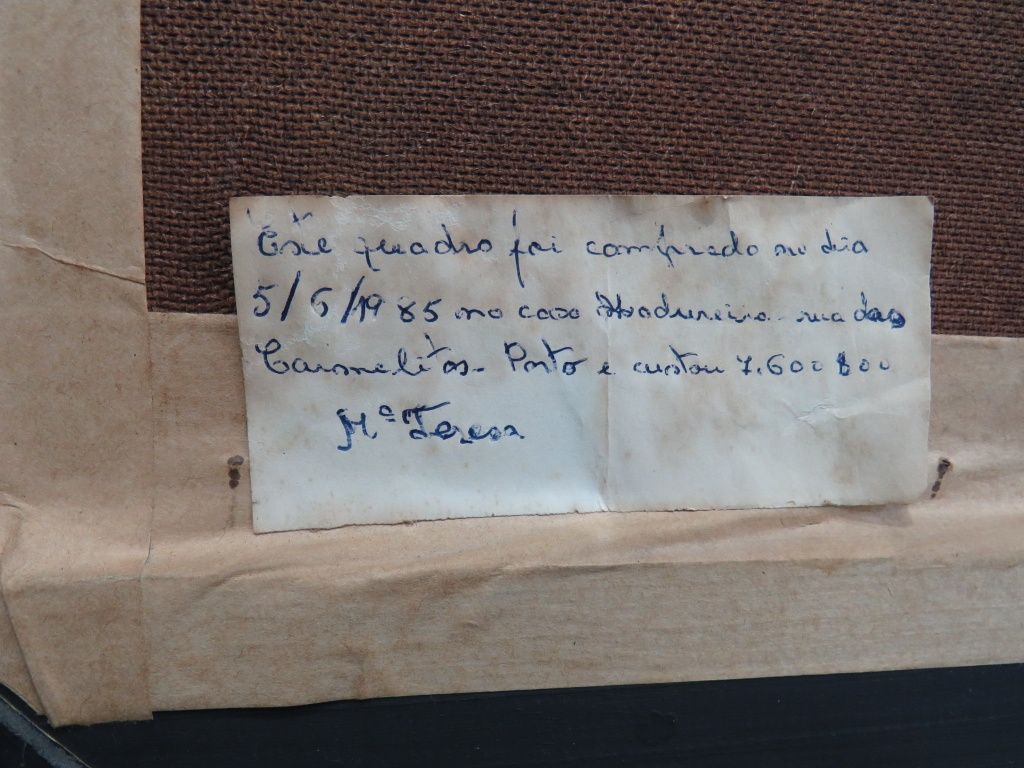 Este quadro foi comprado no dia
5/6/1985 na casa Madureira - rua das
Carmelitas - Porto e custou 7.600$00
Mª Teresa